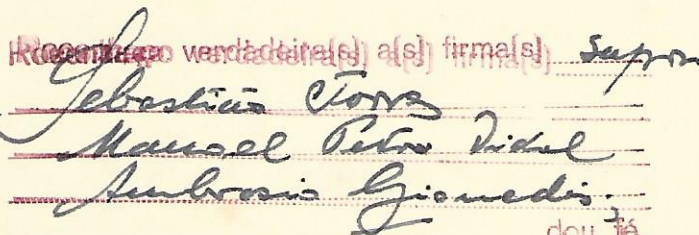 Reconheço verdadeira[s] a[s] firma[s] supra
Sebastião Torres
Manoel Pedro Vidal
Ambrosio Gionedis,
dou fé